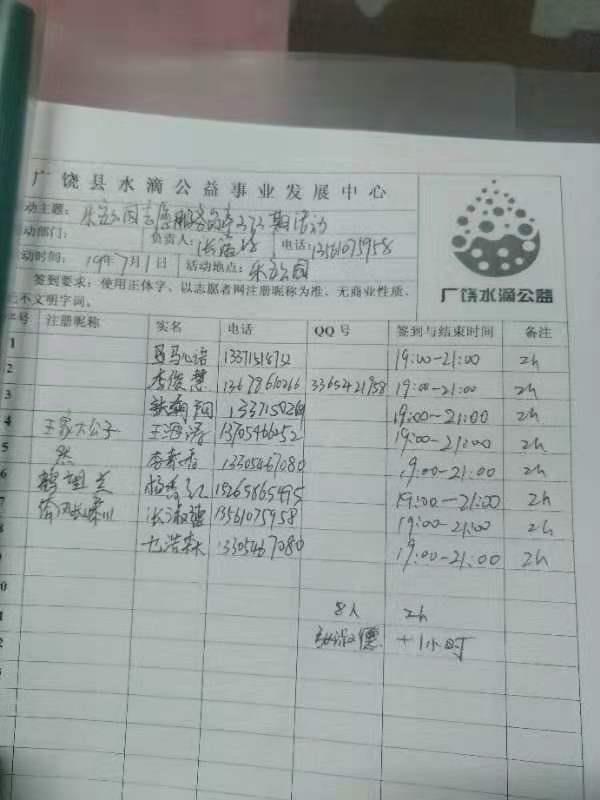 广饶县水滴公益事业发展中心
动主题: 乐安公园志愿服务 期活动
动部门: 负责人: 电话: 13561075958
动时间: 19年7月1日 活动地点: 乐安公园
签到要求: 使用正体字、以志愿者网注册昵称为准、无商业性质、
不文明字词。
广饶水滴公益
号 注册昵称 实名 电话 QQ号 签到与结束时间 备注
1 19:00-21:00 2h
2 李俊慧 13678610266 3365421958 19:00-21:00 2h
19:00-21:00 2h
4 王家大公子 王海涛 13705466252 19:00-21:00 2h
5 然 李素香 13305467080 19:00-21:00 2h
6 杨秀红 15265865495 19:00-21:00 2h
7 张淑德 13561075958 19:00-21:00 2h
浩森 13305467080 19:00-21:00 2h
0
1 8人 2h
2 张淑德 +1小时
3